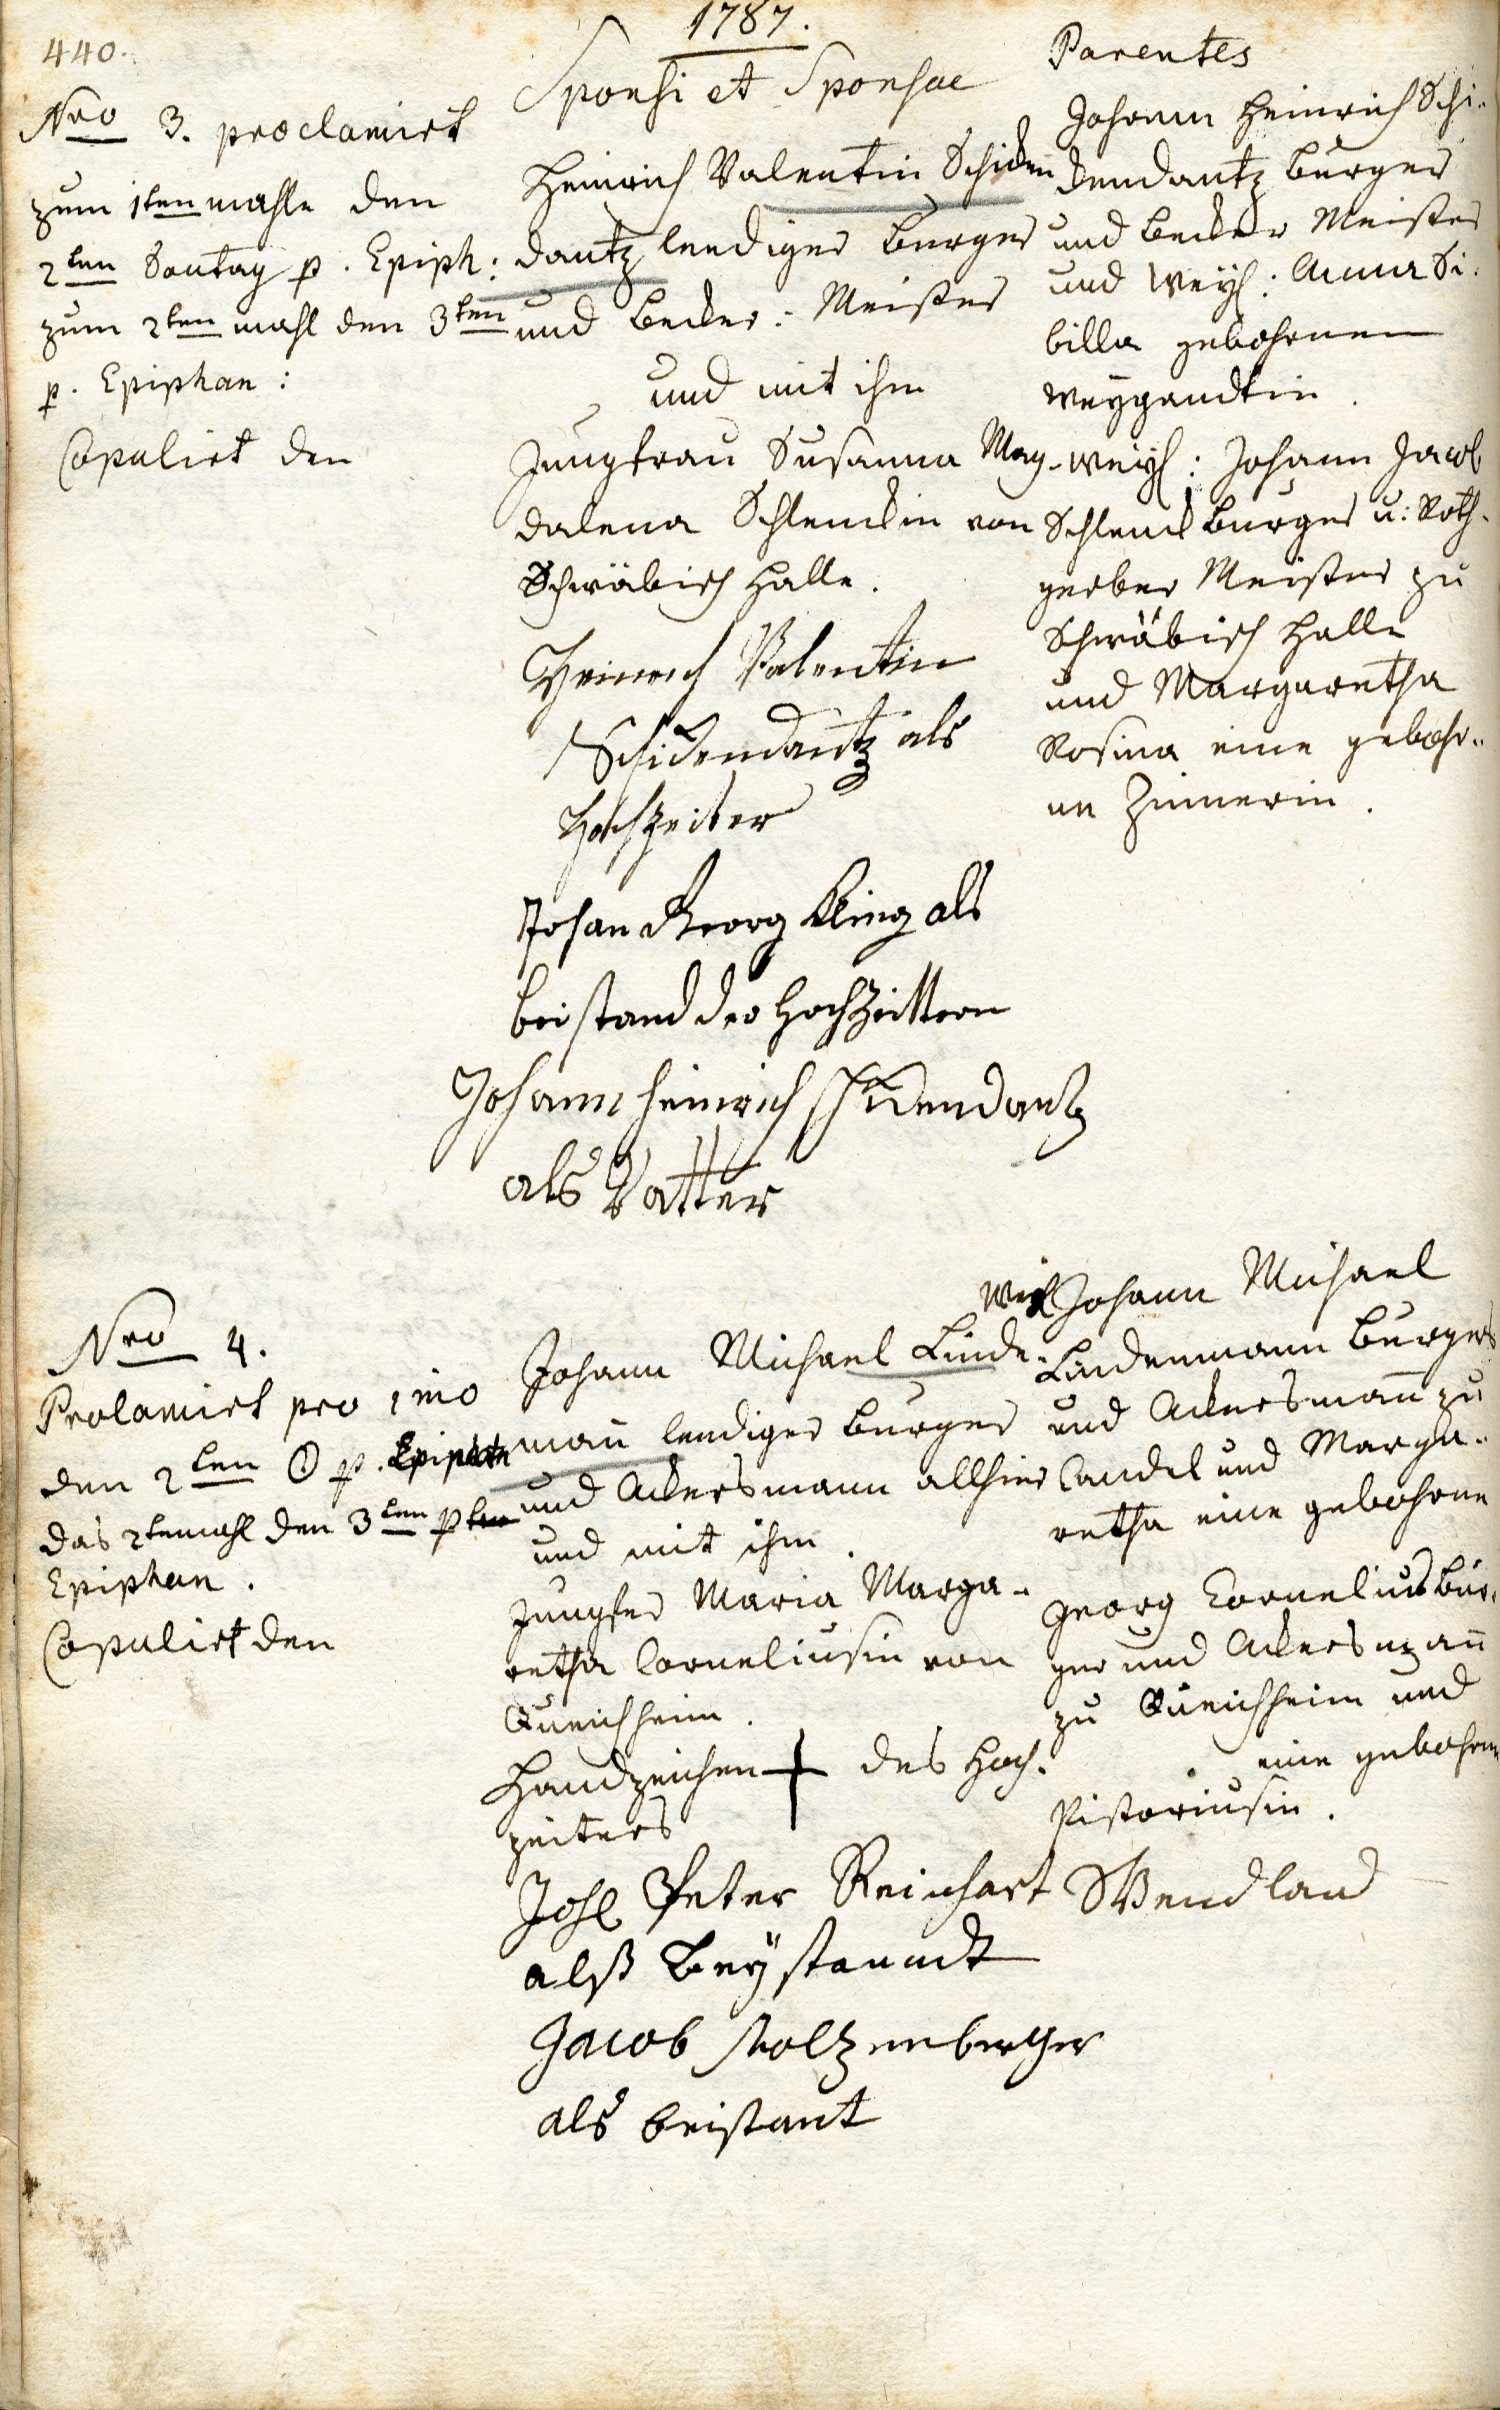 440.
1787.
Sponsi et Sponsae
Parentes
Nro 3. proclamirt
zum 1ten mahle den
2ten Sontag p. Epiph:
zum 2ten mahl den 3ten
p. Epiphan:
Copulirt den
Heinrich Valentin Schiden
dantz lediger Burger
und Becker: Meister
und mit ihm
Jungfrau Susanna Mag-
dalena Schlenckin von
Schwäbisch Halle.
Heinrich Valentin
Schidendantz als
Hochzeiter
Johan Georg Kling als
beistand der Hochzeittern
Johann Heinrich Schidendantz
als Vatter
Johann Heinrich Schi-
dendantz Burger
und Becker Meister
und Weyl: Anna Si-
billa gebohrnen
Weygandtin.
Weyl: Johann Jacob
Schlenck Burger u: Roth-
gerber Meister zu
Schwäbisch Halle
und Margaretha
Rosina eine gebohr-
ne Zimerin.
Nro 4.
Prolamirt pro 1mo
den 2ten ☉ p. Epiph
das 2temahl den 3ten p
Epiphan.
Copulirt den
Johann Michael Linde-
man lediger Burger
und Ackersmann allhier
und mit ihm.
Jungfer Maria Marga-
retha Corneliusin von
Queichheim.
Handzeichen + des Hoch-
zeiters
Joh Peter Reinhart Wendland
alß Beystandt
Jacob Stoltzenberger
als beistant
Weyl Johann Michael
Lindenmann Burger
und Ackersman zu
Candel und Marga-
retha eine gebohrne
Georg Cornelius Bur-
ger und Ackersman
zu Queichheim und
eine gebohrne
Pistoriusin.